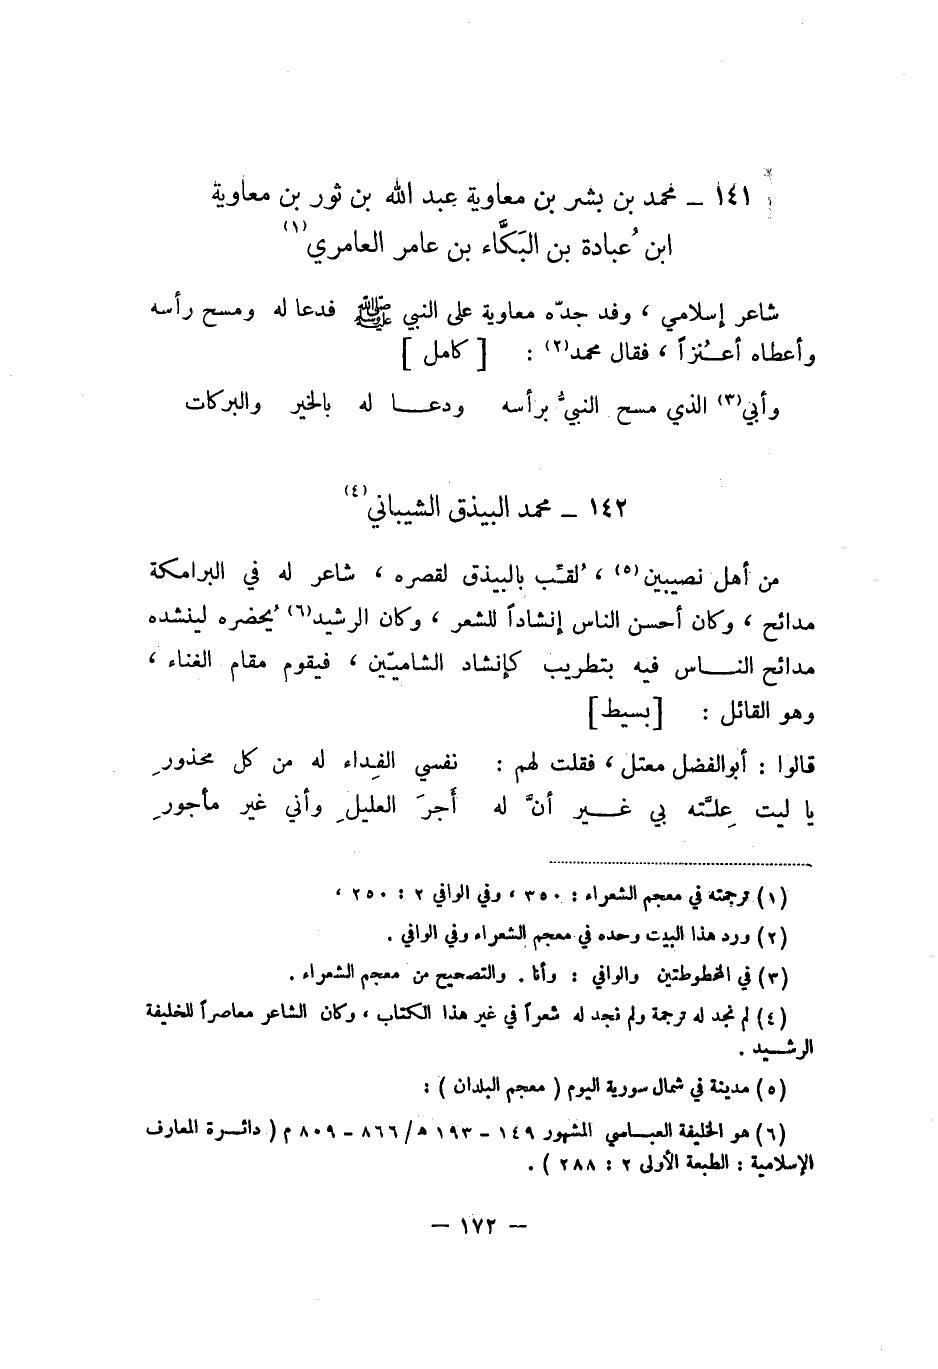 ١٤١ ــ محمد بن بشر بن معاوية عبد الله بن ثور بن معاوية
ابن عُبادة بن البَكَّاء بن عامر العامري(١)
شاعر إسلامي ، وفد جدّه معاوية على النبي ﷺ فدعا له ومسح رأسه
وأعطاه أعنُزاً ، فقال محمد(٢) : [ كامل ]
وأبي(٣) الذي مسح النبيُّ برأسه ودعا له بالخير والبركات
١٤٢ ــ محمد البيذق الشيباني(٤)
من أهل نصيبين(٥) ، لُقّب بالبيذق لقصره ، شاعر له في البرامكة
مدائح ، وكان أحسن الناس إنشاداً للشعر ، وكان الرشيد(٦) يُحضره لينشده
مدائح الناس فيه بتطريب كإنشاد الشاميّين ، فيقوم مقام الغناء ،
وهو القائل : [بسيط]
قالوا : أبوالفضل معتل ، فقلت لهم : نفسي الفِداء له من كل محذورِ
يا ليت عِلَّته بي غير أنَّ له أَجرَ العليلِ وأني غير مأجورِ
(١) ترجمته في معجم الشعراء : ٣٥٠ ، وفي الوافي ٢ : ٢٥٠ ،
(٢) ورد هذا البيت وحده في معجم الشعراء وفي الوافي .
(٣) في المخطوطتين والوافي : وأنا . والتصحيح من معجم الشعراء .
(٤) لم نجد له ترجمة ولم نجد له شعراً في غير هذا الكتاب ، وكان الشاعر معاصراً للخليفة
الرشيد .
(٥) مدينة في شمال سورية اليوم ( معجم البلدان ) :
(٦) هو الخليفة العباسي المشهور ١٤٩ – ١٩٣ ه/ ٨٦٦ – ٨٠٩ م ( دائرة المعارف
الإسلامية : الطبعة الأولى ٢ : ٢٨٨ ) .
– ١٧٢ –